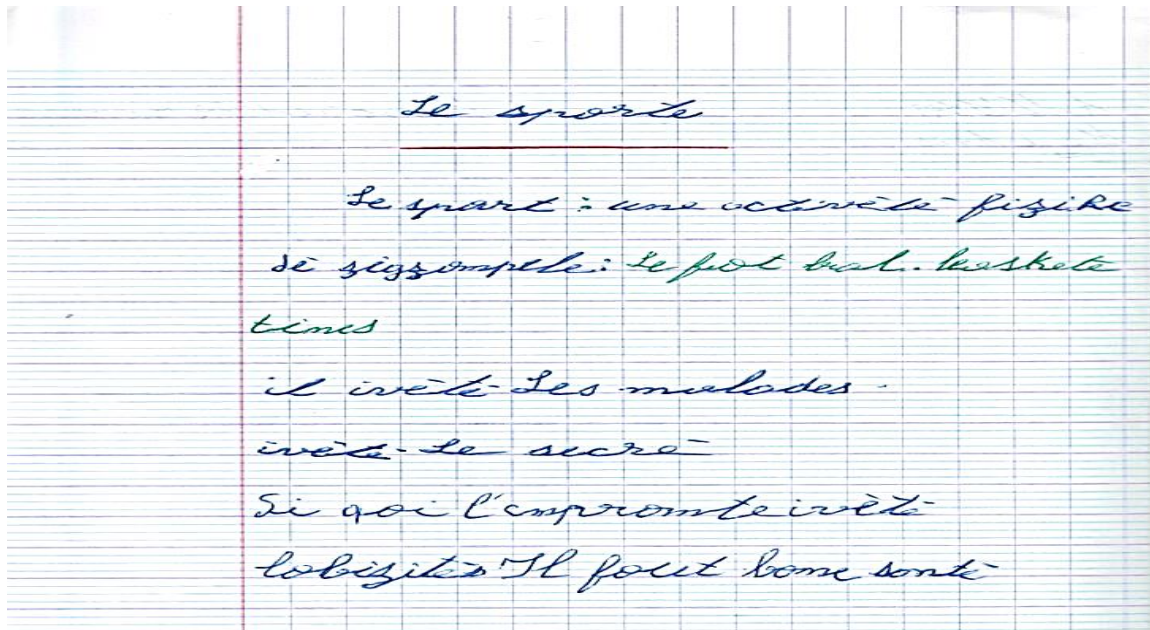 Le sporte
Le sport : une activèté fizike
dè zigzomple: Le foot bal. baskete
tines
il ivèté Les malades.
ivèté Le sucre
Si qoi l'empromte ivèté
lobizités Il fout bone sonté